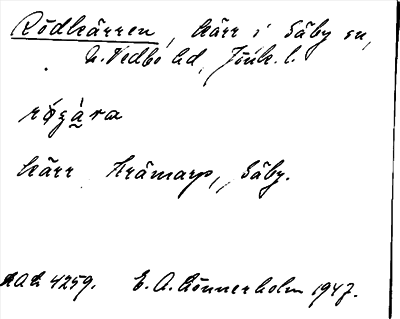 Rödkärren, kärr i Säby sn,
N. Vedbo hd, Jönk. l.
kärr Kråmarp, Säby.
4259. E. A. Könnerholm 1947.